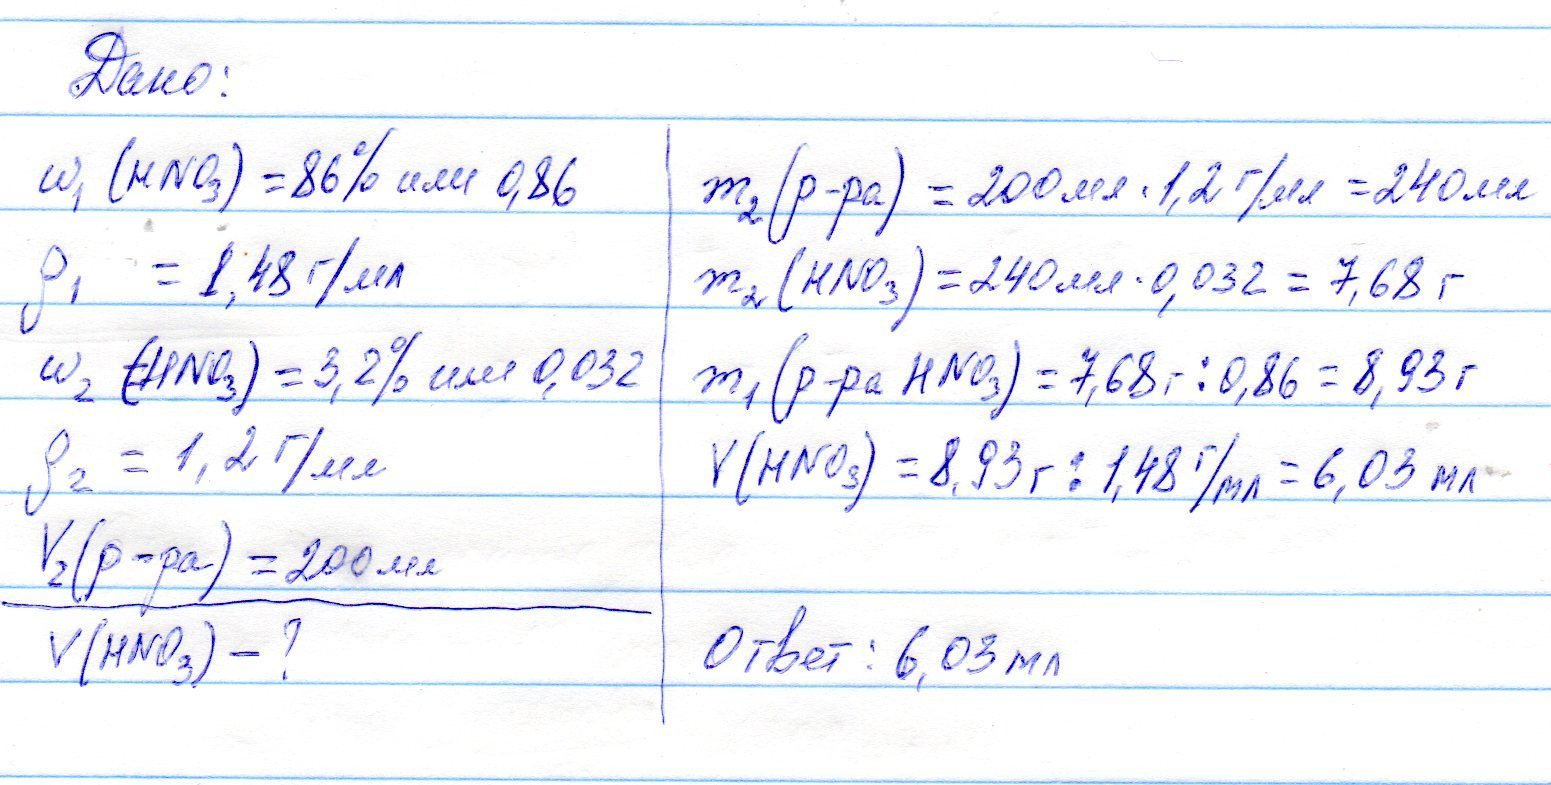 Дано:
ω₁ (HNO₃) = 86% или 0,86
ρ₁ = 1,48 г/мл
ω₂ (HNO₃) = 3,2% или 0,032
ρ₂ = 1,2 г/мл
V₂(р-ра) = 200 мл
V(HNO₃) – ?
m₂(р-ра) = 200 мл · 1,2 г/мл = 240 мл
m₂(HNO₃) = 240 мл · 0,032 = 7,68 г
m₁(р-ра HNO₃) = 7,68 г : 0,86 = 8,93 г
V(HNO₃) = 8,93 г : 1,48 г/мл = 6,03 мл
Ответ: 6,03 мл